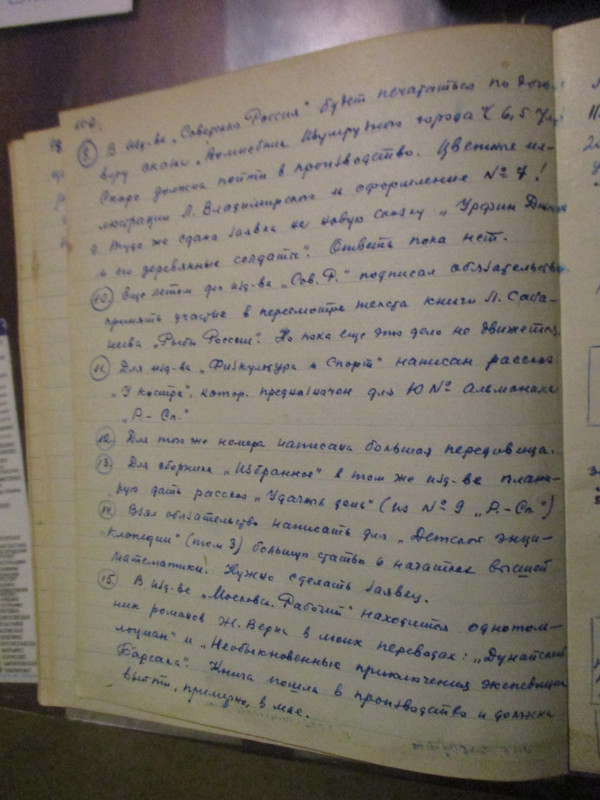 8. В изд-ве „Советская Россия" будет печататься по дого-
вору сказка „Волшебник Изумрудного города"
Скоро должна пойти в производство. Цветные ил-
люстрации Л. Владимирского и оформление №7!
9. Туда же сдана заявка на новую сказку „Урфин Джюс
и его деревянные солдаты". Ответа пока нет.
10. Еще летом для изд-ва „Сов. Р." подписал обязательство
принять участие в пересмотре текста книги Л. Саба-
неева „Рыбы России". Но пока еще это дело не движется.
11. Для изд-ва „Физкультура и Спорт" написан рассказ
„У костра", котор. предназначен для 10 № Альманаха
„Р.-Сп."
12. Для того же номера написана большая передовица.
13. Для сборника „Избранное" в том же изд-ве плани-
рую дать рассказ „Удачный день" (из №9 „Р.-Сп.")
14. Взял обязательство написать для „Детской энци-
клопедии" (том 3) большую статью о начатках высшей
математики. Нужно сделать заявку.
15. В изд-ве „Московск. Рабочий" находится однотом-
ник романов Ж. Верна в моих переводах: „Дунайский
лоцман" и „Необыкновенные приключения экспедиции
Барсака". Книга пошла в производство и должна
выйти, примерно, в мае.